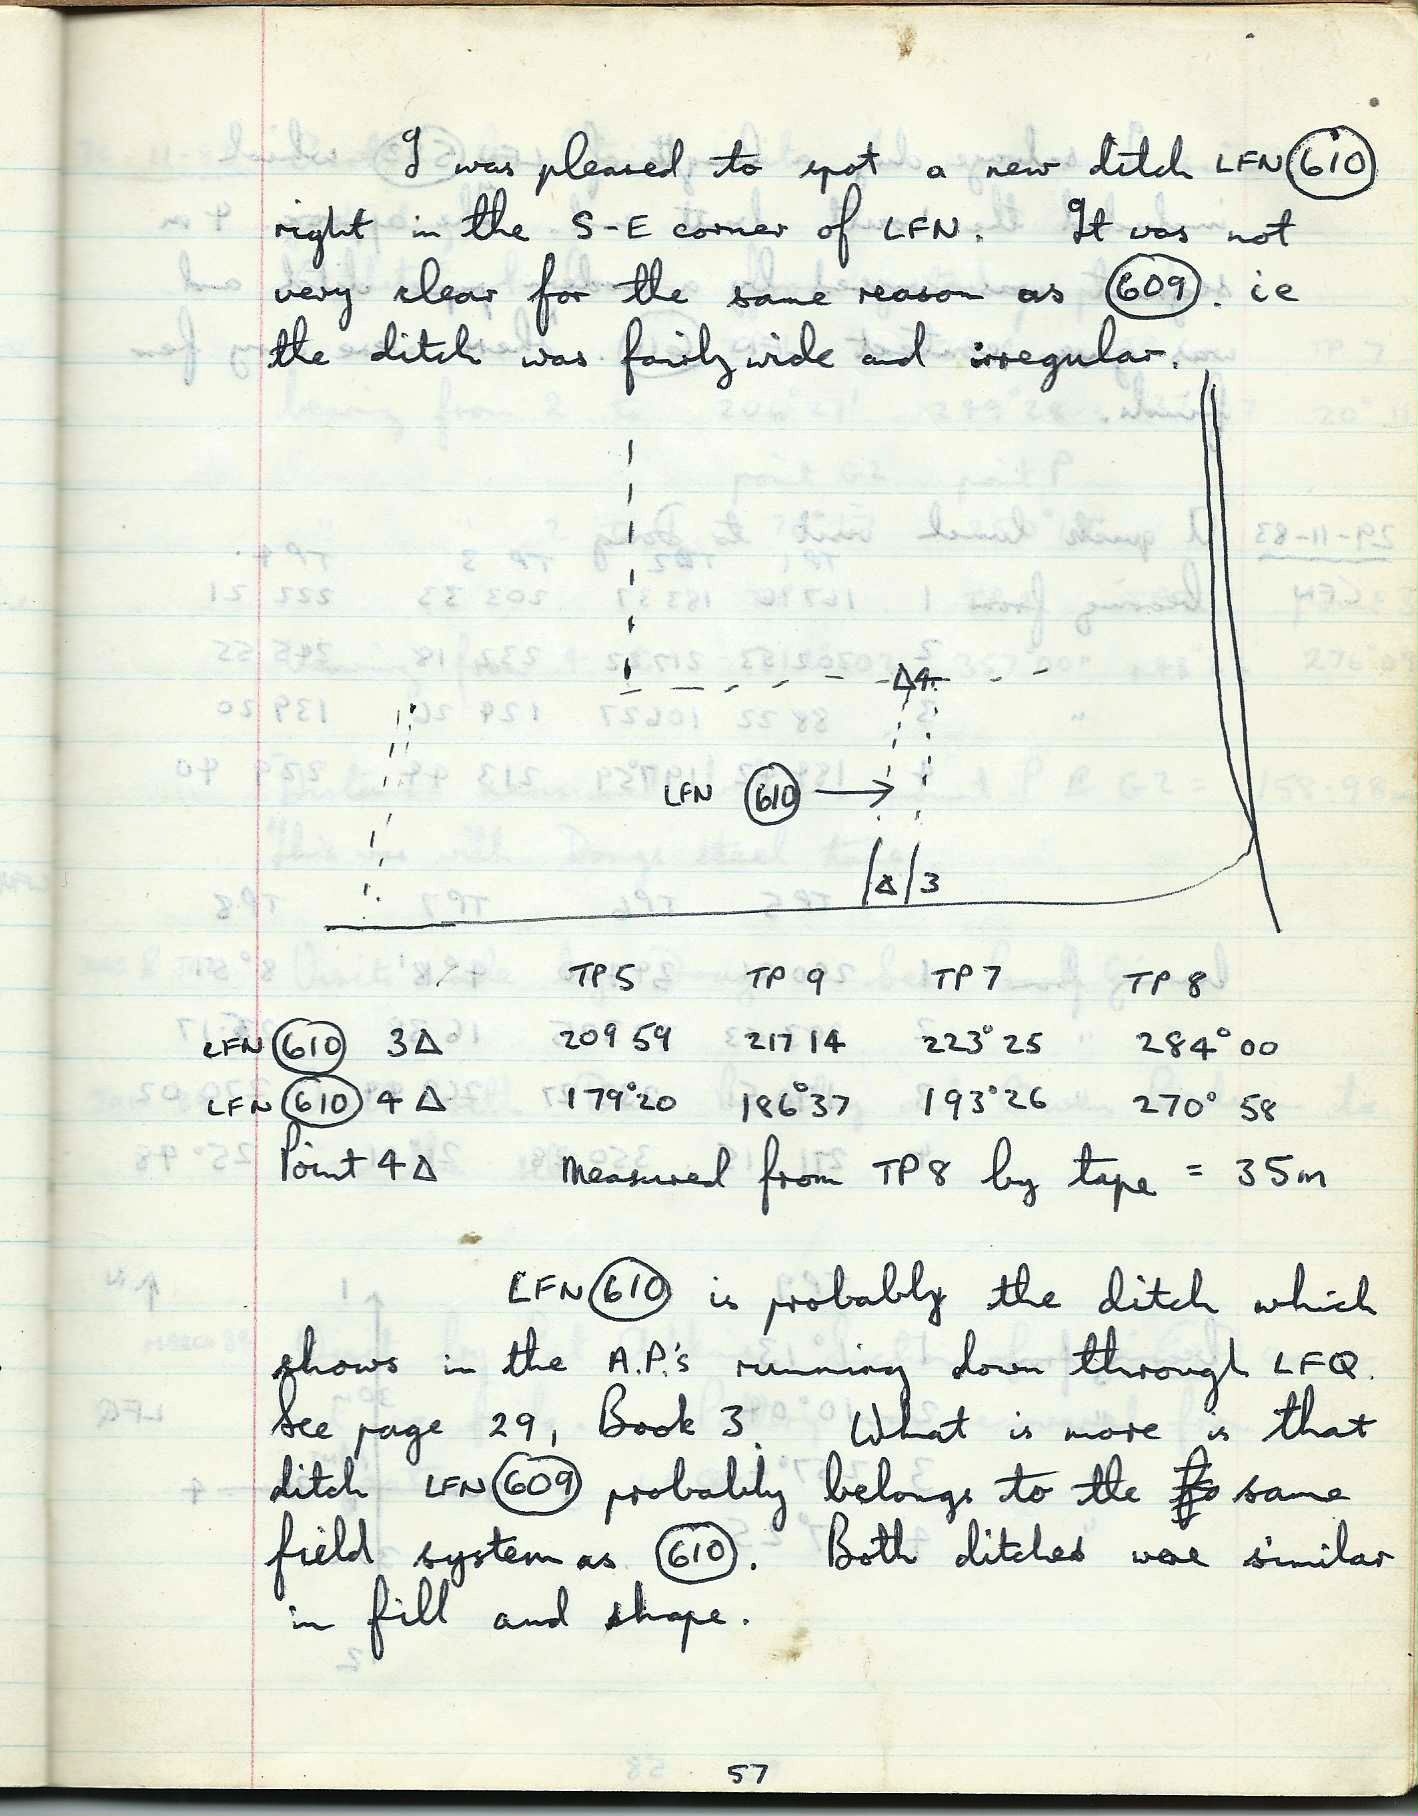 I was pleased to spot a new ditch LFN 610
right in the S-E corner of LFN. It was not
very clear for the same reason as 609. ie
the ditch was fairly wide and irregular.
Δ4
LFN 610 →
Δ 3
TP5 TP9 TP7 TP8
LFN 610 3Δ 209 59 217 14 223°25 284°00
LFN 610 4Δ 179°20 186°37 193°26 270°58
Point 4Δ Measured from TP8 by tape = 35m
LFN 610 is probably the ditch which
shows in the A.P.'s running down through LFQ.
See page 29, Book 3. What is more is that
ditch LFN 609 probably belongs to the same
field system as 610. Both ditches were similar
in fill and shape.
57